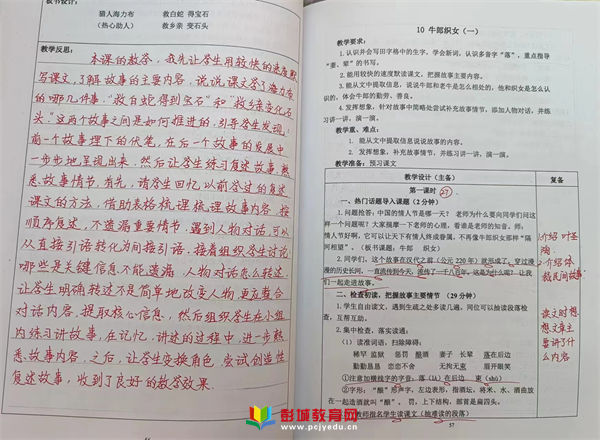 板书设计:
猎人海力布 救白蛇 得宝石
(热心助人) 救乡亲 变石头
教学反思:
本课的教学,我先让学生用较快的速度默
写课文,了解故事的主要内容,说说课文写了海力布
的哪几件事。"救白蛇得到宝石"和"救乡亲变化石
头"这两个故事之间是如何推进的,引导学生发现:
前一个故事埋下的伏笔,在后一个故事的发展中
一步步地呈现出来。然后让学生练习复述故事,熟
悉故事情节。首先,请学生回忆以前学过的复述
课文的方法,借助表格梳理梳理故事内容,按
顺序复述,不遗漏重要情节,遇到人物对话,可以
从直接引语转化为间接引语。接着组织学生讨论
哪些是关键信息不能遗漏,人物对话怎么转述,
让学生明确转述不是简单地改变人物,更应整合
对话内容,提取核心信息,然后组织学生在小组
内练习讲故事,在记忆、讲述的过程中,进一步熟
悉故事内容。之后,让学生变换角色,尝试创造性
复述故事,收到了良好的教学效果。
10 牛郎织女(一)
教学要求:
1.认识并会写田字格中的生字,学会新词,认识多音字"落",重点指导
"妻、辈"的书写。
2.能用较快的速度默读课文,把握故事主要内容。
3.能从文中提取信息,说说牛郎和老牛是怎么相处的,他和织女是怎么认
识的,体会牛郎的勤劳、善良。
4.发挥想象,针对故事中简略处尝试补充故事情节,添加人物对话,并练
习讲一讲,演一演。
教学重、难点:
1.能从文中提取信息说说故事的内容。
2.发挥想象,补充故事情节,并练习讲一讲,演一演。
教学准备:预习课文
教学设计(主备) 复备
第一课时 27
一、热门话题导入课题(2分钟)
1.问题抢答:中国的情人节是哪一天? 老师为什么要向同学们问这
样一个问题呢?大家揣摩一下老师的心理,看谁是老师的知音。师:
情人节好啊,它可以让天下有情人终成眷属,不再像牛郎织女那样"隔
河相望"。(板书课题:牛郎 织女)
2.同学们,这个故事在汉代之前(公元220年)就形成了,穿过漫
漫的历史长河,一直流传到今天,流传了一千八百年。这是为什么呢?让我
们一起走进故事。
二、检查初读,把握故事主要情节 (29分钟)
1.学生自由读文,遇到生疏之处多读几遍。同位可以抽读段落检
查,互帮互助。
2.集中检查,落实读通:
(1)读准词语,扫除障碍:
稀罕 监狱 惩罚 酿酒 妻子 长辈 落在后边
勤勤恳恳 恋恋不舍 无拘无束 眉开眼笑
①注意加横线字的字音:落(là)在后边 束(shù)
②字形:"酿"形声字,左边表形,指酒坛。将米、水、酒曲放
在一起造酒就叫"酿"。 罚,上下结构,部首是扁四头。
教师指名学生读课文(抽难读的段落)
1介绍叶圣
陶
2介绍体
裁民间故事
读文时想
想文章主
要讲了什
么内容
57
彭城教育网
www.pcjyedu.cn